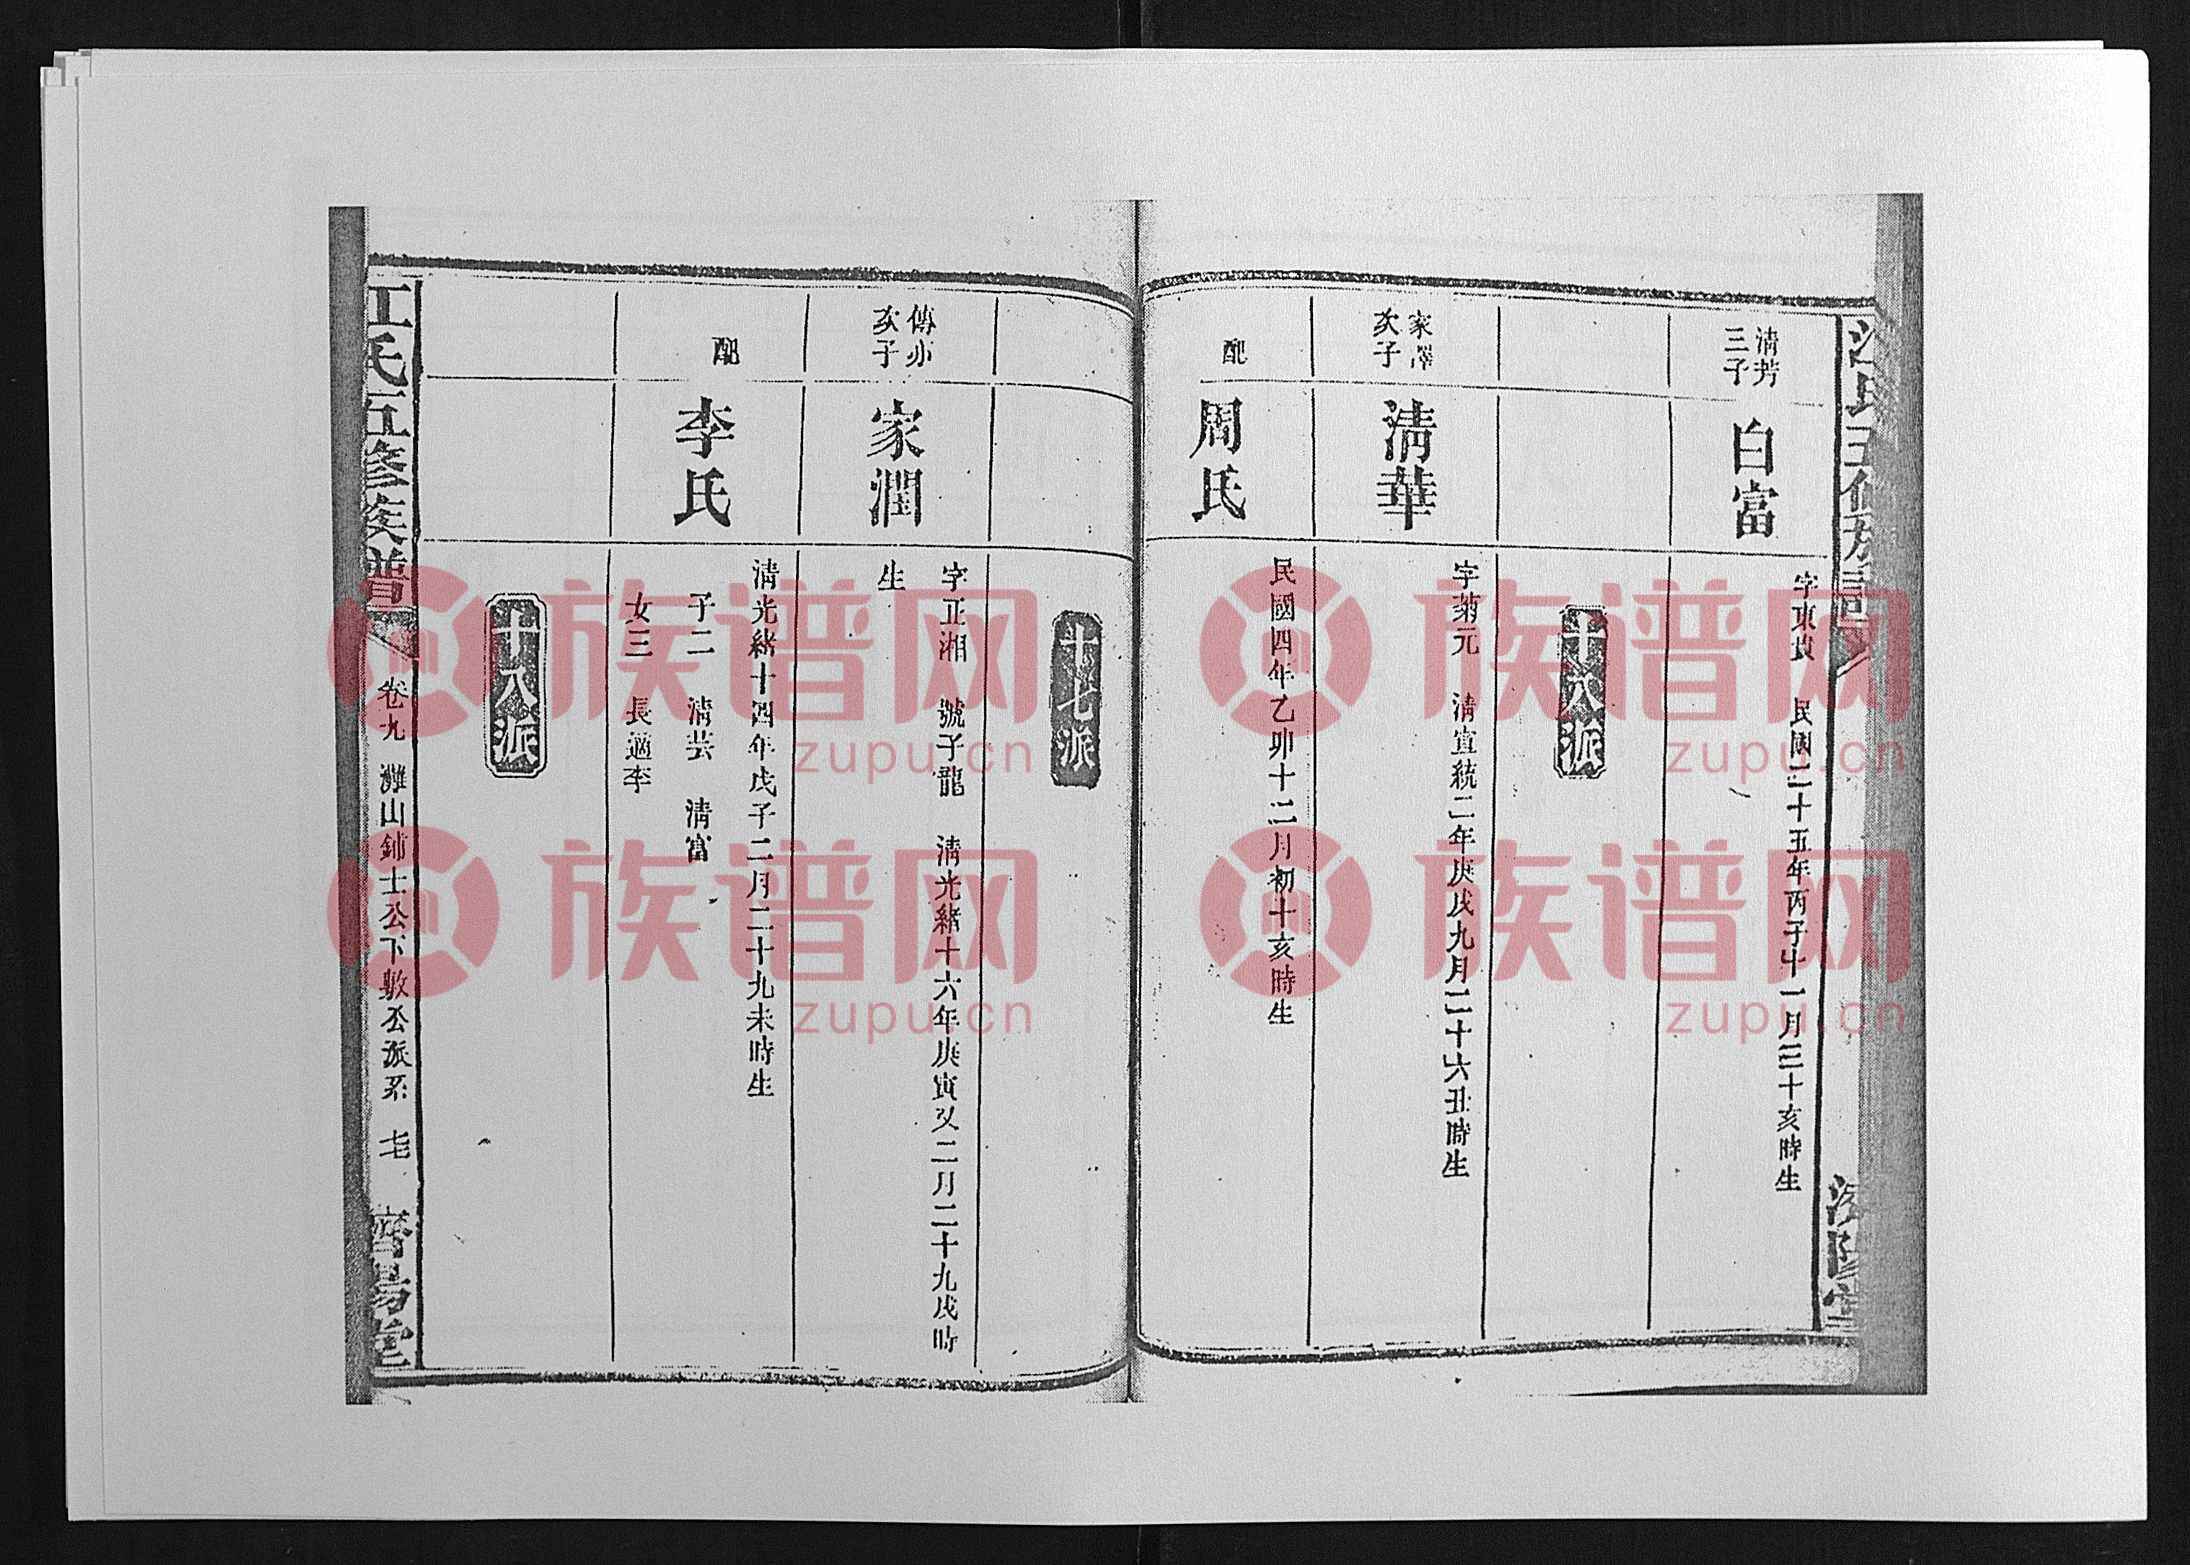 清芳
三子
白富
字東㳟 民國二十五年丙子十一月三十亥時生
十八派
家澤
次子
清華
字菊元 清宣統二年庚戌九月二十六丑時生
配
周氏
民國四年乙卯十二月初十亥時生
十七派
傳亦
次子
家潤
字正湘 號子龍 清光緒十六年庚寅又二月二十九戌時
生
配
李氏
清光緒十四年戊子二月二十九未時生
子二 清芸 清富
女三 長適李
十八派
江氏五修族譜
卷九 灘山鋪士公下敷公派系 七
濟陽堂
族谱网
zupu.cn
族谱网
zupu.cn
族谱网
zupu.cn
族谱网
zupu.cn